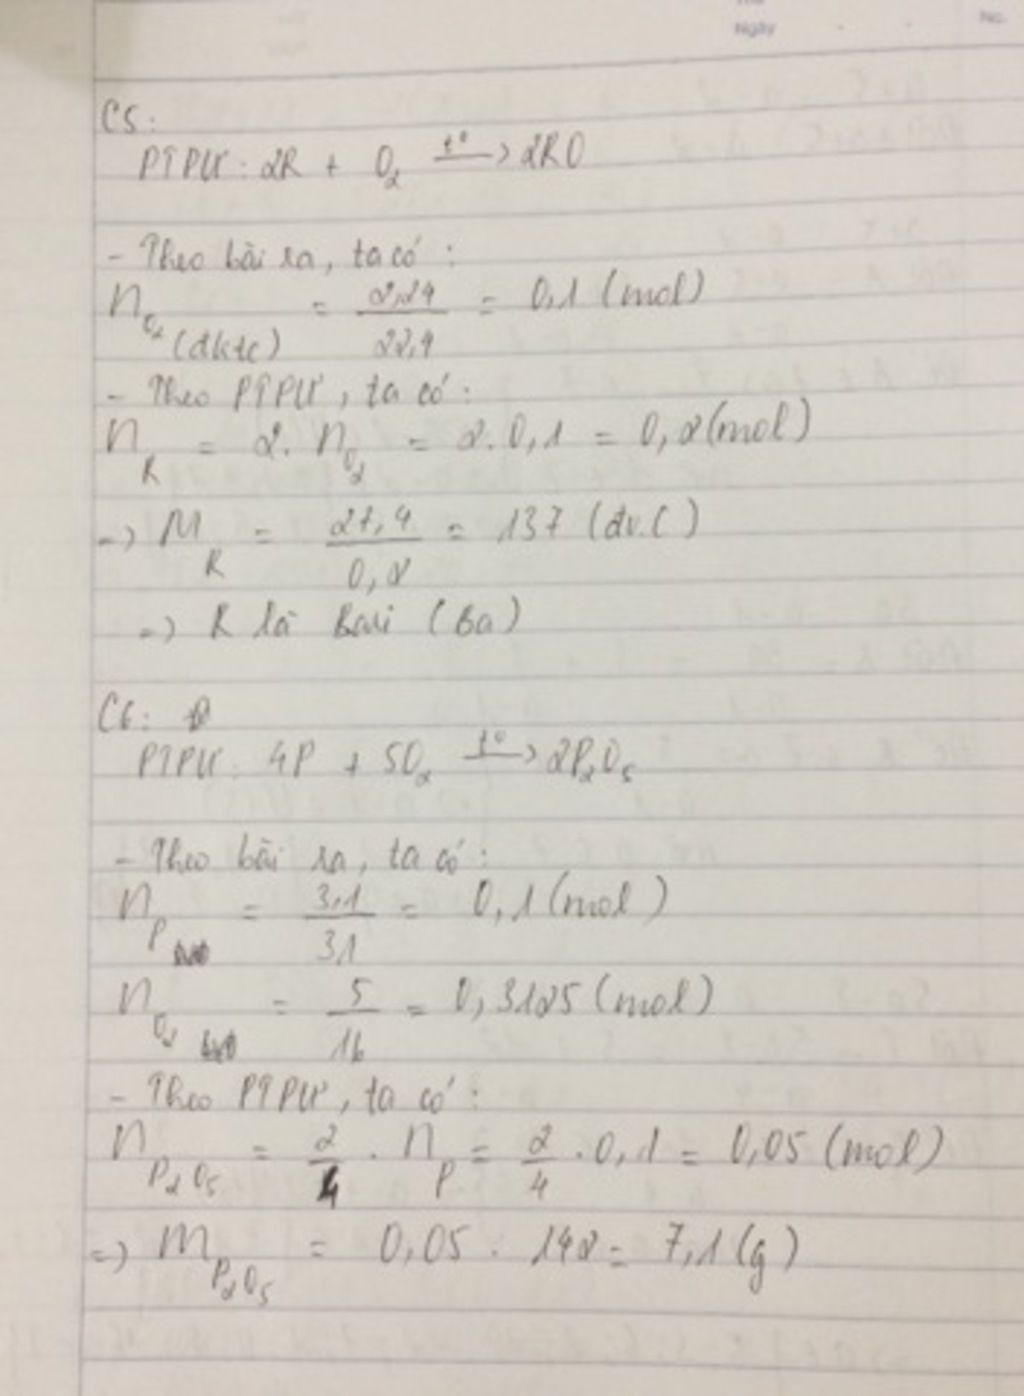 Ngày
No.
C5:
PTPƯ: 2R + O₂ —t°→ 2RO
- Theo bài ra, ta có:
n O₂ (đktc) = 2,24 / 22,4 = 0,1 (mol)
- Theo PTPƯ, ta có:
n R = 2. n O₂ = 2. 0,1 = 0,2 (mol)
=> M R = 27,4 / 0,2 = 137 (đv.C)
=> R là Bari (Ba)
C6:
PTPƯ: 4P + 5O₂ —t°→ 2P₂O₅
- Theo bài ra, ta có:
n P = 3,1 / 31 = 0,1 (mol)
n O₂ = 5 / 16 = 0,3125 (mol)
- Theo PTPƯ, ta có:
n P₂O₅ = 2/4 . n P = 2/4 . 0,1 = 0,05 (mol)
=> m P₂O₅ = 0,05 . 142 = 7,1 (g)